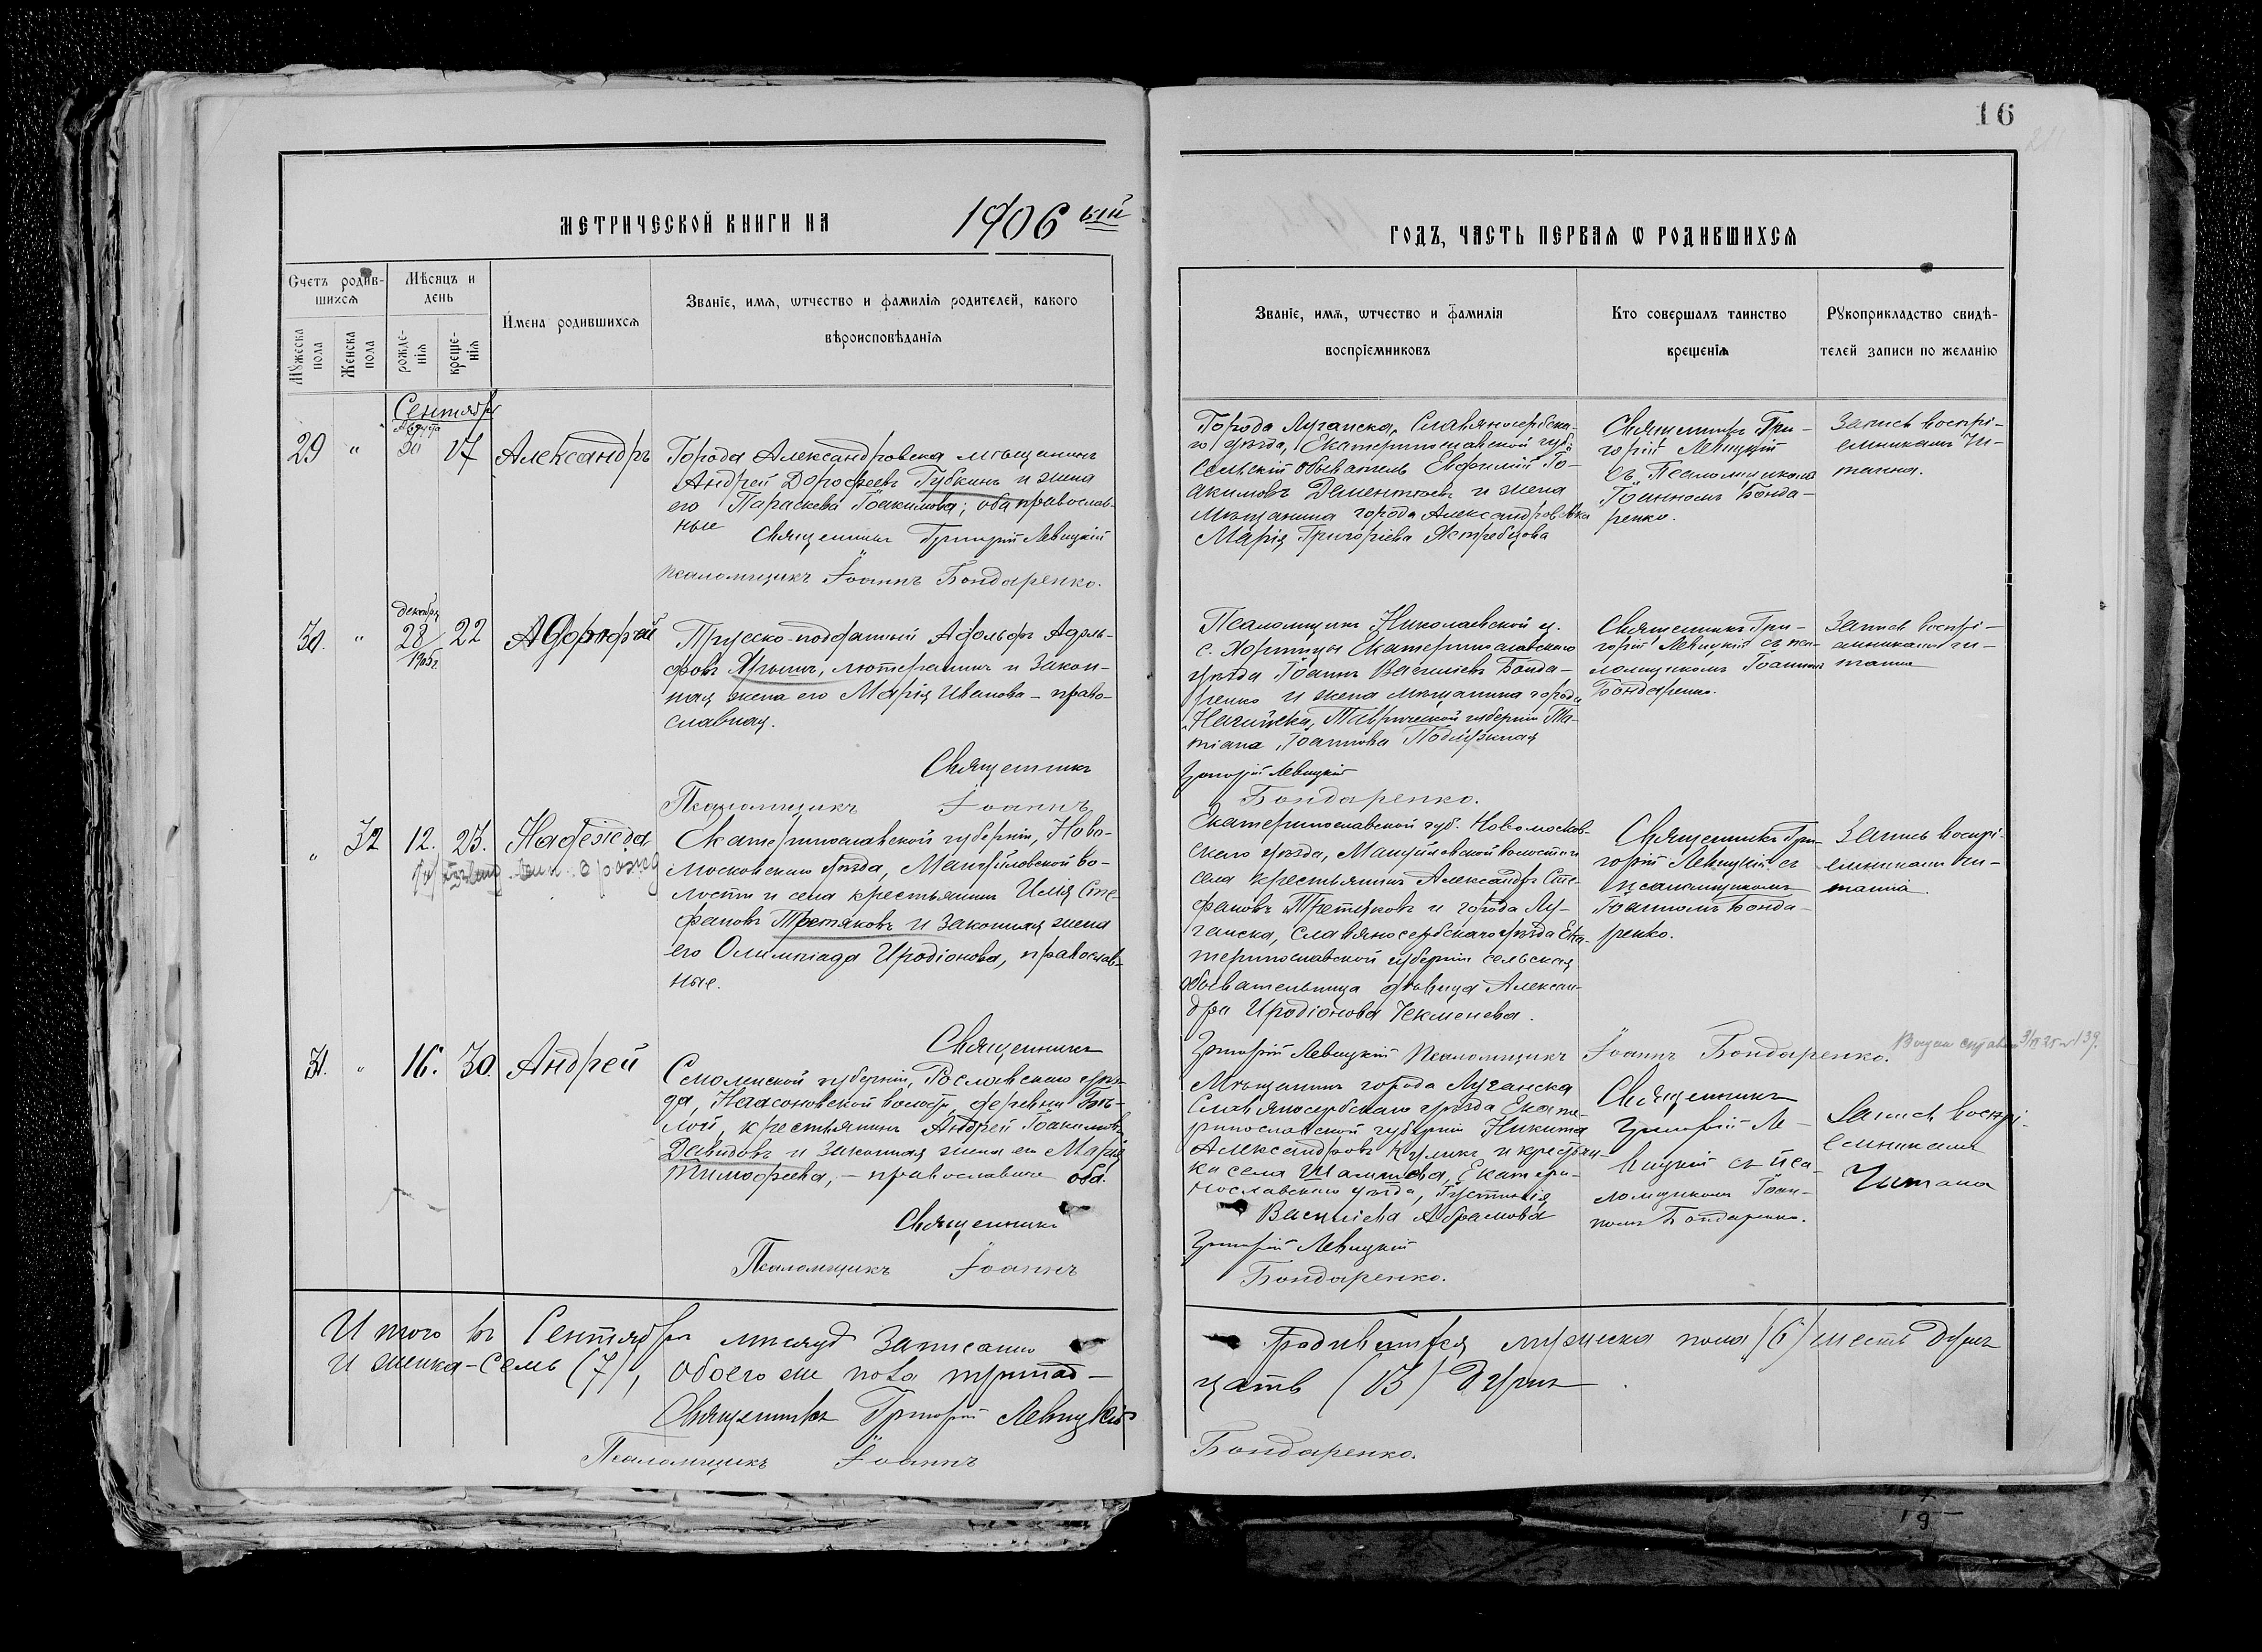 16
МЕТРИЧЕСКОЙ КНИГИ НА 1906 ый
ГОДЪ, ЧАСТЬ ПЕРВАѦ Ѡ РОДИВШИХСѦ
Счетъ родив-
шихсѧ
Мѣсяцъ и
день
Мꙋжеска
пола
Женска
пола
рожде-
нїѧ
креще-
нїѧ
Имена родившихсѧ
Званїе, имѧ, ѡтчество и фамилїѧ родителей, какого
вѣроисповѣданїѧ
Званїе, имѧ, ѡтчество и фамилїѧ
воспрїемниковъ
Кто совершалъ таинство
крещенїѧ
Рꙋкоприкладство свидѣ-
телей записи по желанїю
Сентябрь
Августа
29 " 30 17 Александръ
Города Александровска мѣщанинъ
Андрей Дорофеевъ Губкинъ и жена
его Параскева Іоакимова; оба православ-
ные
Священникъ Григорій Левицкій
Псаломщикъ Іоаннъ Бондаренко.
Города Луганска, Славяносербска-
го уѣзда, Екатеринославской губ.
Сельскій обыватель Евфимій Іо-
акимовъ Дементьевъ и жена
мѣщанина города Александровска
Марія Григоріева Ястребцова
Священникъ Гри-
горій Левицкій
съ Псаломщикомъ
Іоанномъ Бонда-
ренко.
Запись воспрі-
емникамъ чи-
танна.
декабря
30. " 28 22
1905г.
Прусско-подданный Адольфъ Адоль-
фовъ лютеранинъ и закон-
ная жена его Марія Иванова - право-
славная.
Священникъ
Псаломщикъ Іоаннъ
Псаломщикъ Николаевской ц.
с. Хортицы Екатеринославскаго
уѣзда Іоаннъ Васильевъ Бонда-
ренко и жена мѣщанина города
Ногайска, Таврической губерніи Та-
тіана Іоаннова
Григорій Левицкій
Бондаренко.
Священникъ Гри-
горій Левицкій съ пса-
ломщикомъ Іоанномъ
Бондаренко.
Запись воспрі-
емникамъ чи-
танна
" 32 12. 23. Надежда
Екатеринославской губерніи, Ново-
московскаго уѣзда, Мануйловской во-
лости и села крестьянинъ Илія Сте-
фановъ Третяковъ и законная жена
его Олимпіада Иродіонова, православ-
ные.
Священникъ
Екатеринославской губ. Новомосков-
скаго уѣзда, Мануйловской волости и
села крестьянинъ Александръ Сте-
фановъ Третяковъ и города Лу-
ганска, Славяносербскаго уѣзда Ека-
теринославской губерніи сельская
обывательница дѣвица Алексан-
дра Иродіонова Чекменева.
Григорій Левицкій Псаломщикъ Іоаннъ Бондаренко.
Священникъ Гри-
горій Левицкій съ
псаломщикомъ
Іоанномъ Бонда-
ренко.
Запись воспрі-
емникамъ чи-
танна.
31. " 16. 30. Андрей
Смоленской губерніи, Рославскаго уѣз-
да, волости, деревни Бѣ-
лой, крестьянинъ Андрей Іоакимовъ
Давидовъ и законная жена его Марія
Тимофеева, - православные оба.
Священникъ
Псаломщикъ Іоаннъ
Мѣщанинъ города Луганска
Славяносербскаго уѣзда Екате-
ринославской губерніи Никита
Александровъ Куликъ и крестьян-
ка села Екатери-
нославскаго уѣзда, Іустинія
Васильева Абрамова
Григорій Левицкій
Бондаренко.
Священникъ
Григорій Ле-
вицкій съ пса-
ломщикомъ Іоан-
номъ Бондаренко.
Запись воспрі-
емникамъ
Читана
Итого въ Сентябрѣ мѣсяцѣ записано родившихся мужеска пола (6) шесть душъ
и женска - семь (7), обоего же пола тринад-
цать (13) душъ
Священникъ Григорій Левицкій
Псаломщикъ Іоаннъ Бондаренко.